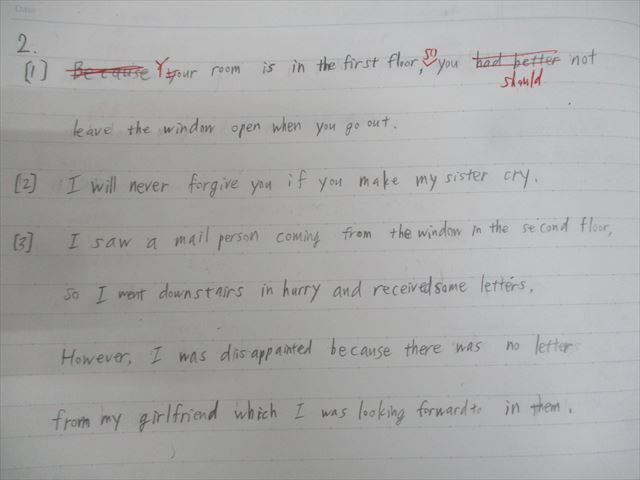 2.
[1] Because Your room is in the first floor, so you had better should not
leave the window open when you go out.
[2] I will never forgive you if you make my sister cry.
[3] I saw a mail person coming from the window in the second floor,
so I went downstairs in hurry and received some letters.
However, I was disappointed because there was no letter
from my girlfriend which I was looking forward to in them.